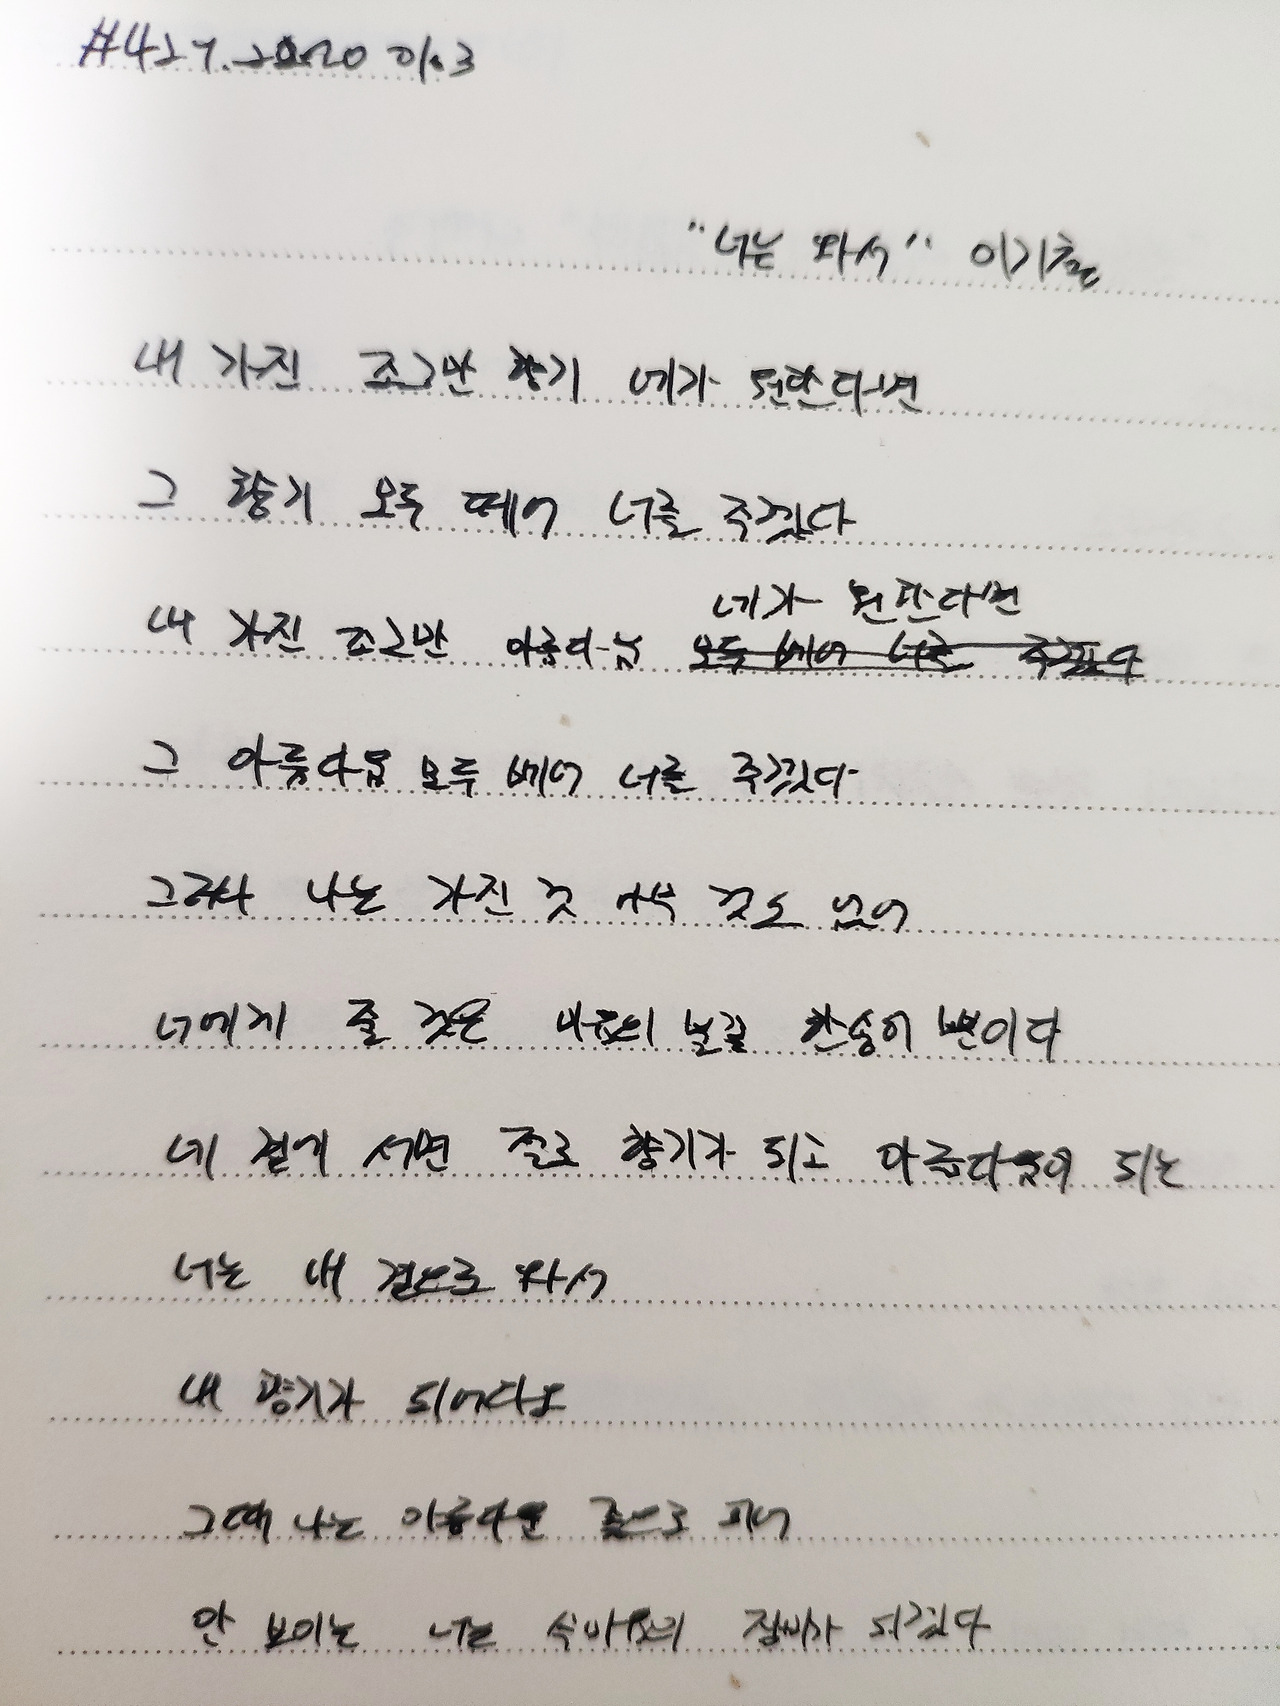 #427. 2020 01.03
"너는 와서" 이기철
내 가진 조그만 향기 네가 원한다면
그 향기 모두 떼어 너를 주겠다
네가 원한다면
내 가진 조그만 아름다움 모두 베어 너를 주겠다
그 아름다움 모두 베어 너를 주겠다
그러나 나는 가진 것 아무 것도 없어
너에게 줄 것은 마음의 불꽃 한송이 뿐이다
네 곁에 서면 절로 향기가 되고 아름다움이 되는
너는 내 곁으로 와서
내 향기가 되어다오
그때 나는 아름다운 꽃으로 피어
안 보이는 너는 속마음의 잠비가 되겠다